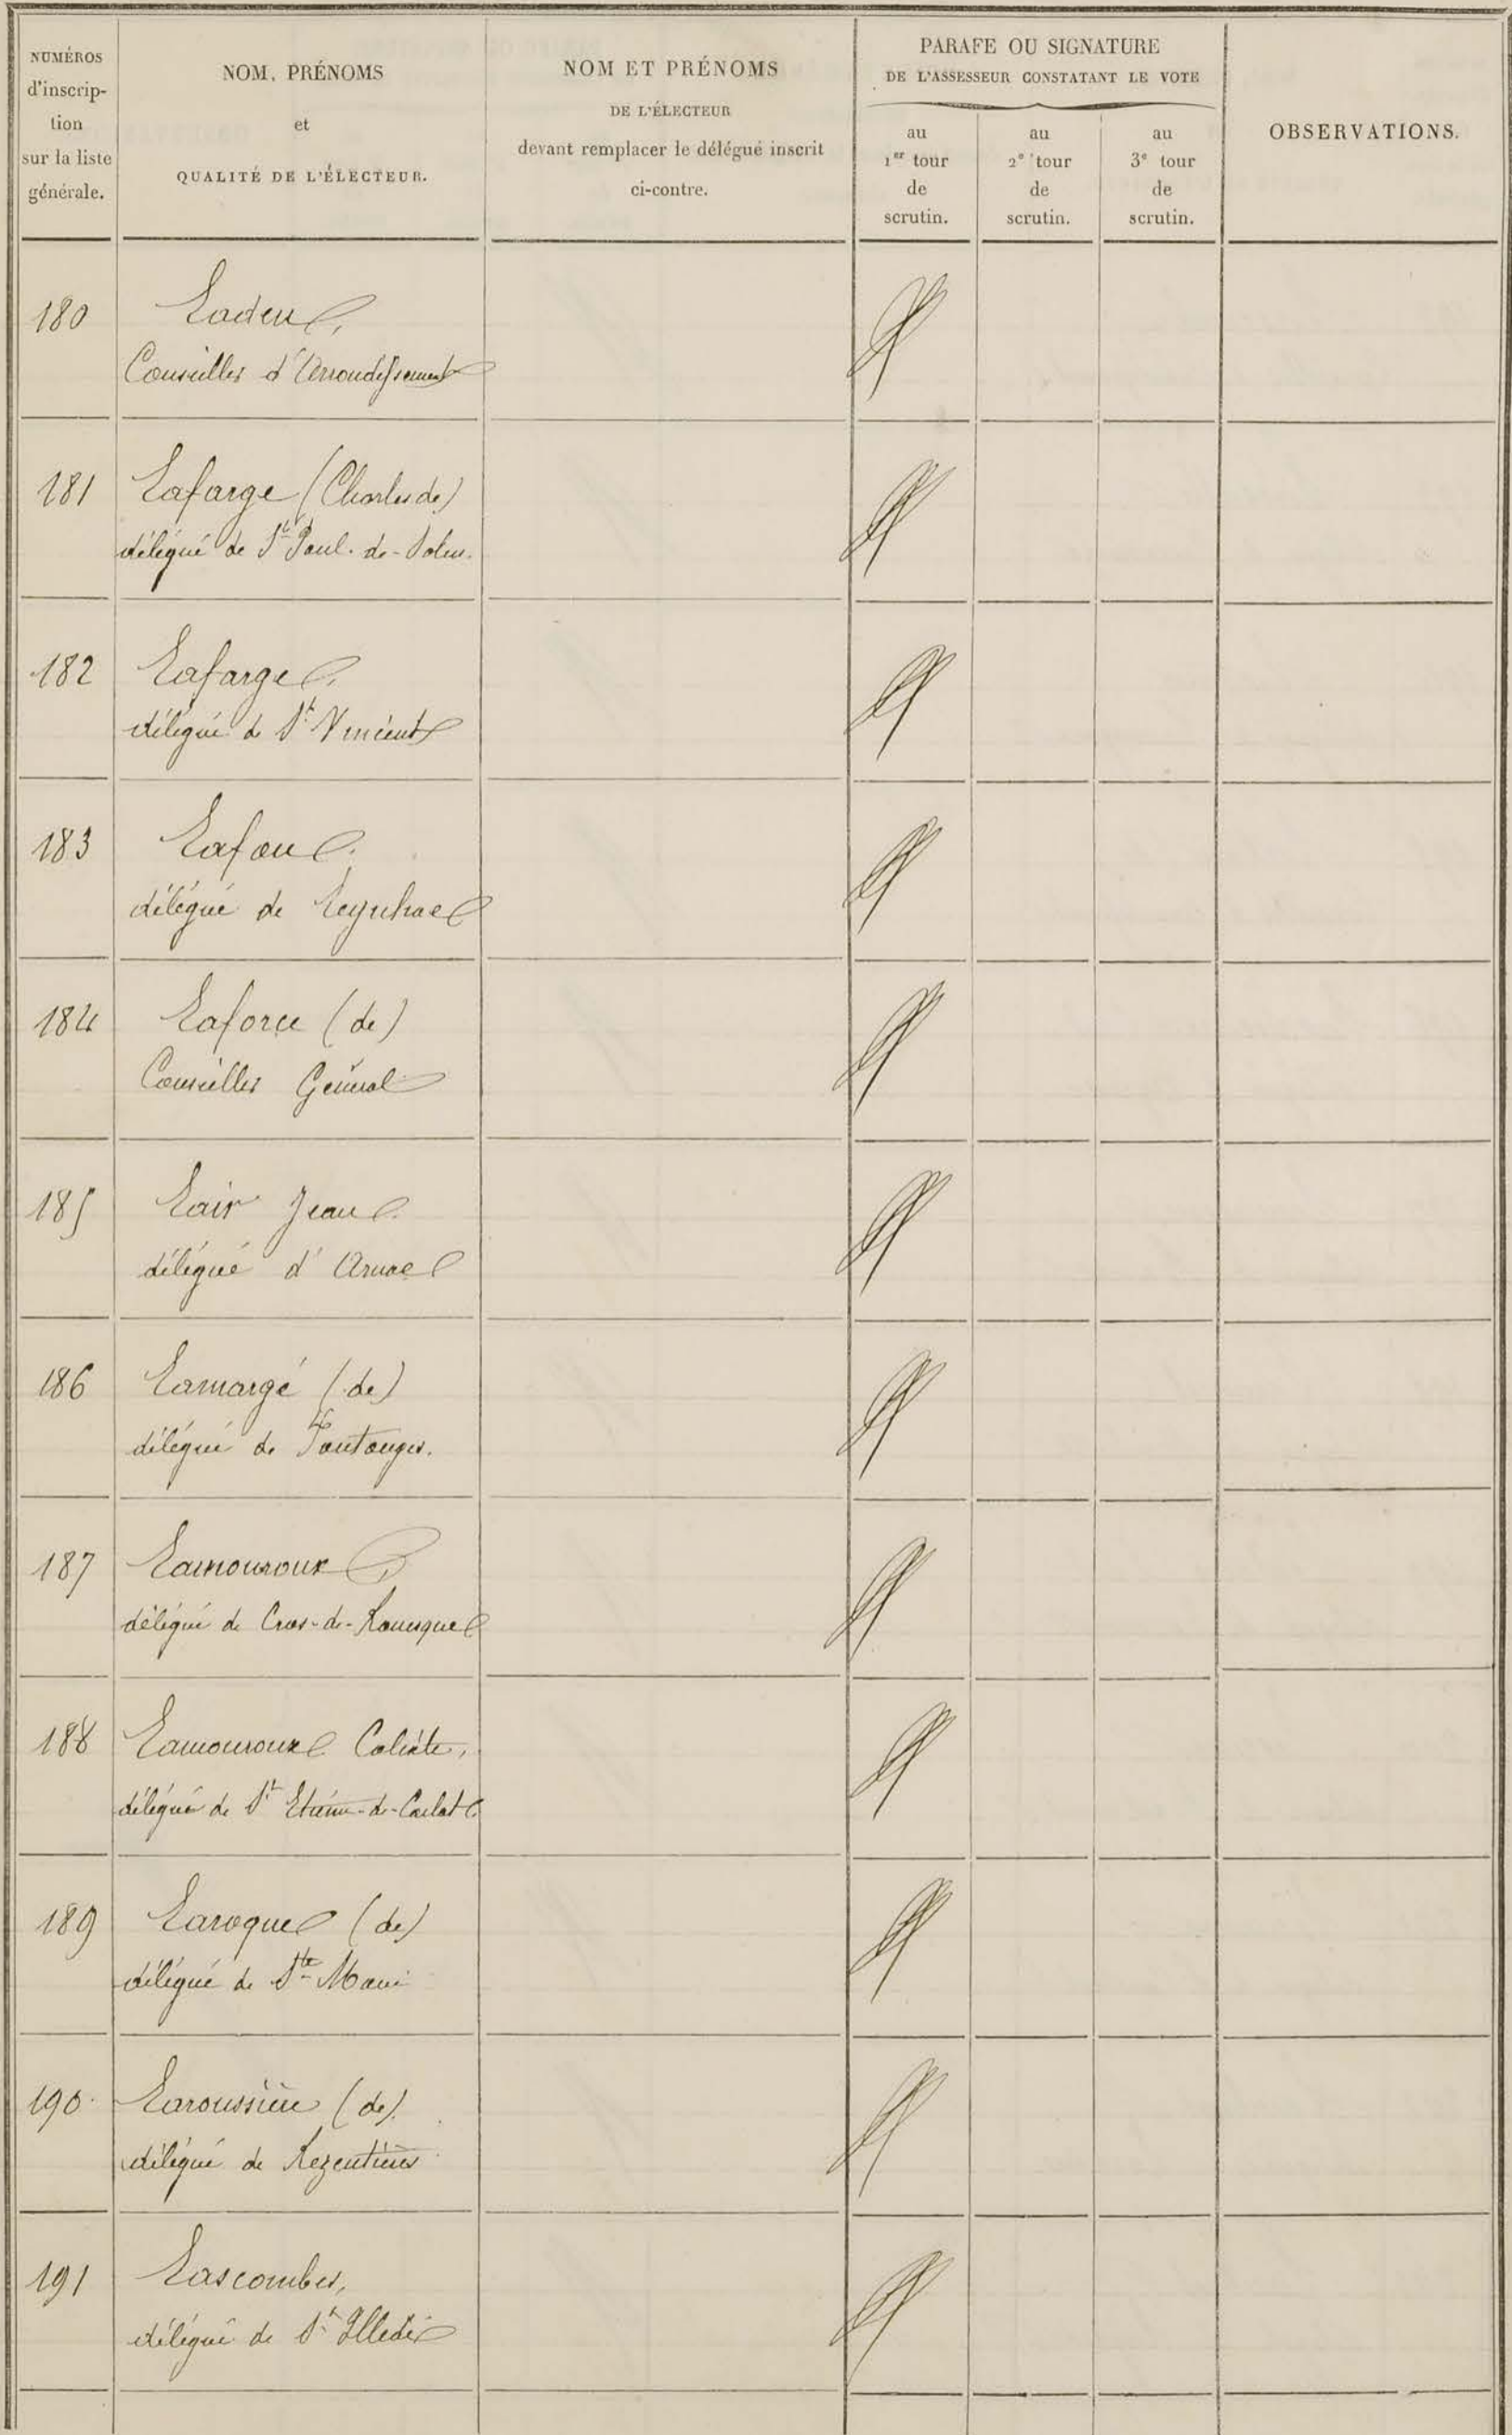 NUMÉROS
d'inscrip-
tion
sur la liste
générale.
NOM, PRÉNOMS
et
QUALITÉ DE L'ÉLECTEUR.
NOM ET PRÉNOMS
DE L'ÉLECTEUR
devant remplacer le délégué inscrit
ci-contre.
PARAFE OU SIGNATURE
DE L'ASSESSEUR CONSTATANT LE VOTE
au
1er tour
de
scrutin.
au
2e tour
de
scrutin.
au
3e tour
de
scrutin.
OBSERVATIONS.
180
Conseiller d'Arrondissement
181 Lafarge (Charles de)
délégué de St Paul-de-Salers.
182 Lafarge,
délégué de St Vincent
183 Lafon
délégué de Leynhac
184 Laforce (de)
Conseiller Général
185 Lair Jean
délégué d'Arnac
186 Lamargé (de)
délégué de Fontanges.
187 Lamouroux
délégué de Cros-de-Ronesque
188 Lamouroux Calixte,
délégué de St Etienne-de-Carlat
189 Laroque (de)
délégué de Ste Marie
190 Laroussière (de)
délégué de Rezentières
191 Lascombes,
délégué de St Illide